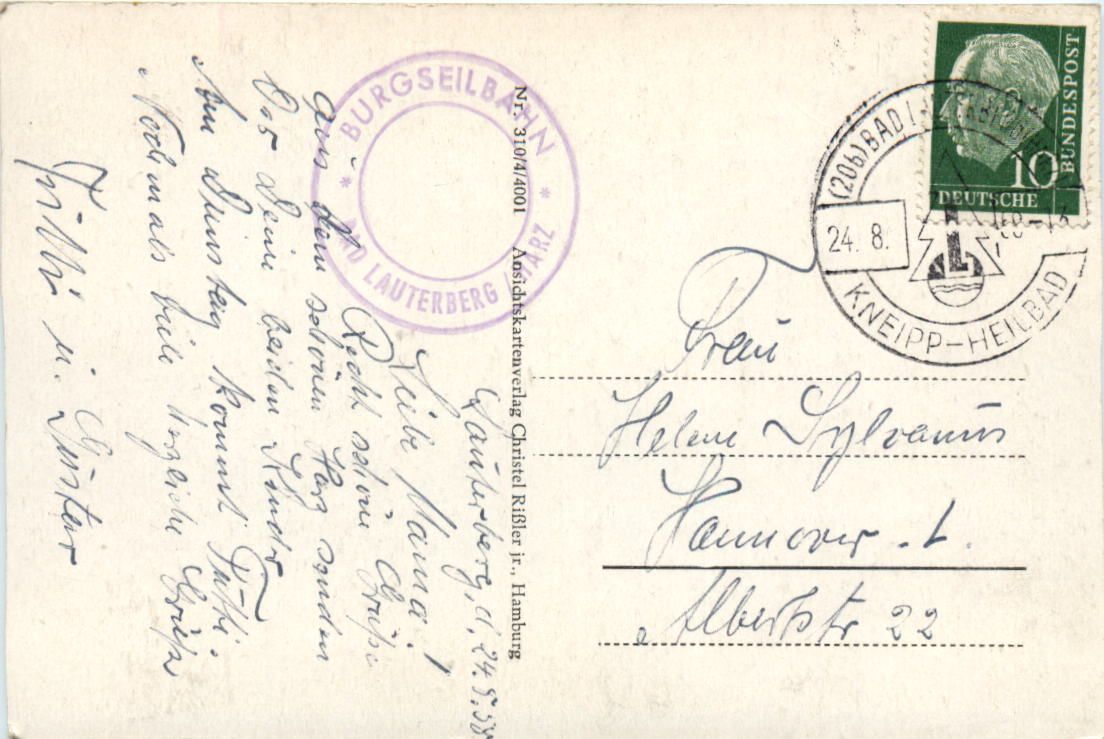 Lauterberg, d. 24.8.58
Liebe Mama!
Recht schöne Grüße
aus dem schönen Harz senden
Dir Deine beiden Kinder
Am Dienstag kommt Putti.
Nochmals viele herzliche Grüße
u. Günter
BURGSEILBAHN
* BAD LAUTERBERG/HARZ *
Nr. 310/4/4001 Ansichtskartenverlag Christel Rißler jr., Hamburg
DEUTSCHE BUNDESPOST
10
(20b) BAD LAUTERBERG
24. 8.
58-13
L
KNEIPP-HEILBAD
Frau
Helene Sylvanus
Hannover - L.
Albertstr 22